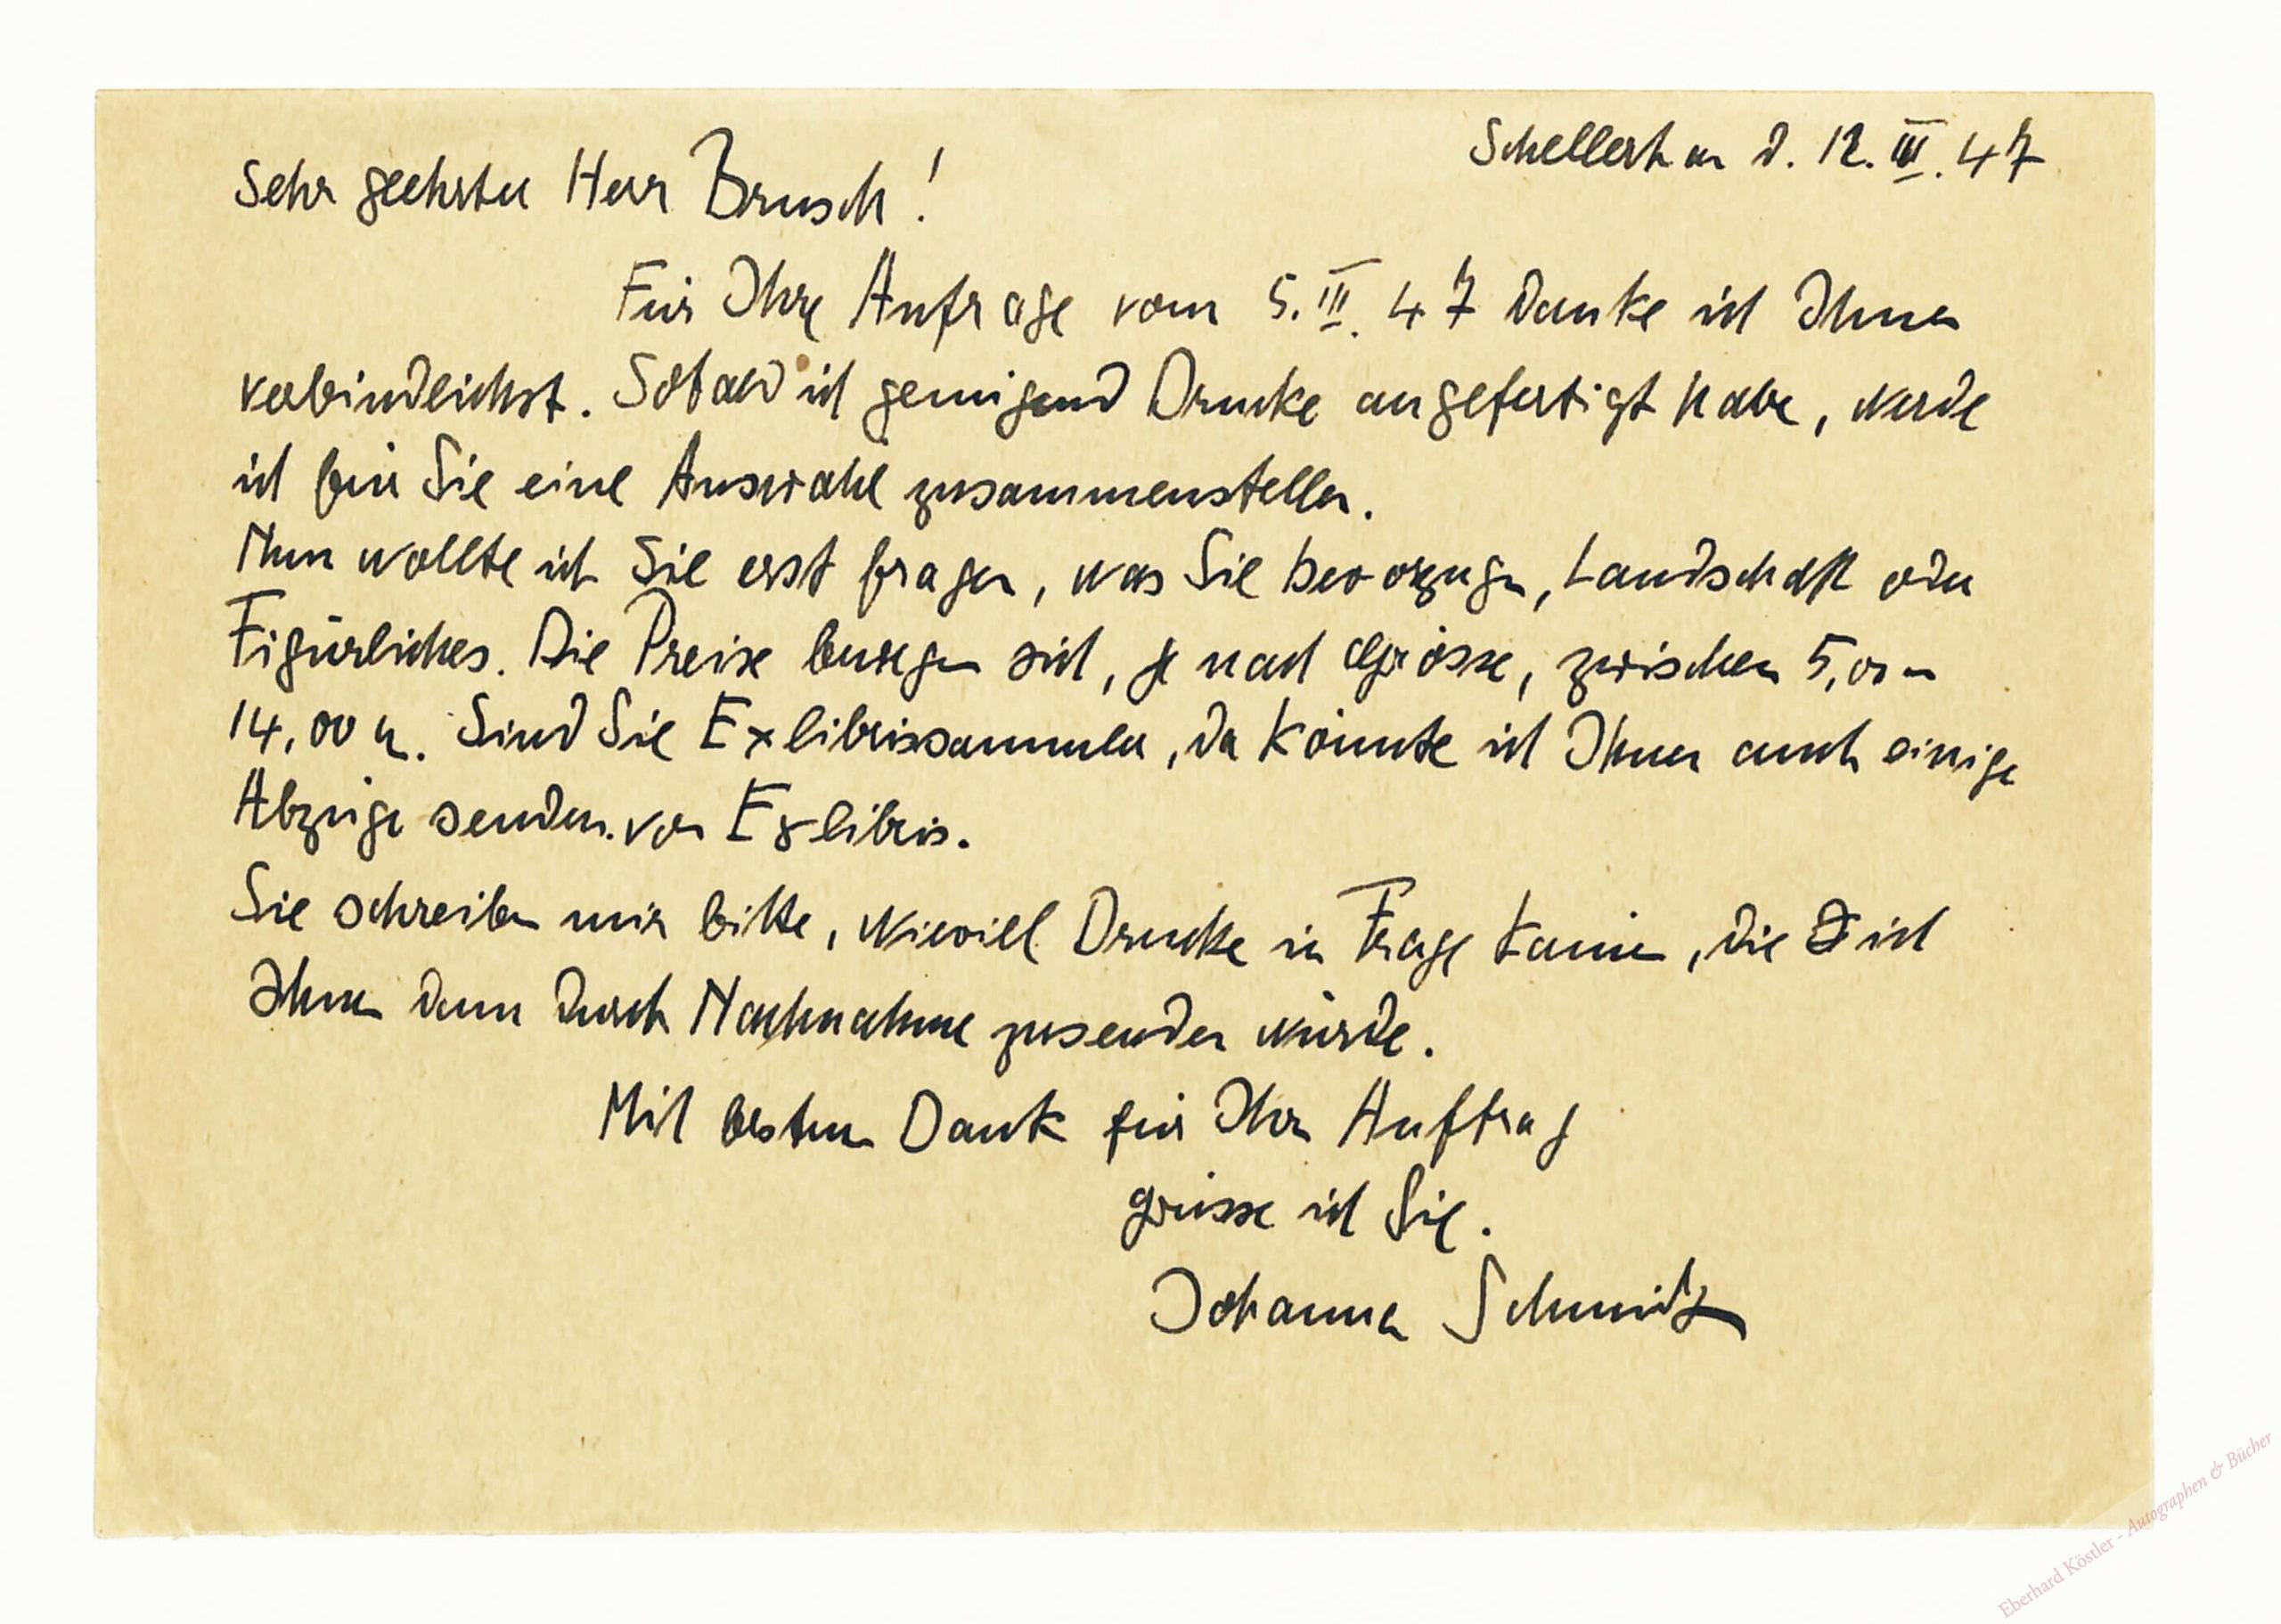 Schellerhan d. 12. III. 47
Sehr geehrter Herr Brusch!
Für Ihre Anfrage vom 5. III. 47 danke ich Ihnen
verbindlichst. Sobald ich genügend Drucke angefertigt habe, werde
ich für Sie eine Auswahl zusammenstellen.
Nun wollte ich Sie erst fragen, was Sie bevorzugen, Landschaft oder
Figürliches. Die Preise bewegen sich, je nach Grösse, zwischen 5,00 –
14,00 M. Sind Sie Exlibrissammler, da könnte ich Ihnen auch einige
Abzüge senden von Exlibris.
Sie schreiben mir bitte, wieviel Drucke in Frage kämen, die ich
Ihnen dann durch Nachnahme zusenden würde.
Mit besten Dank für Ihren Auftrag
grüsse ich Sie.
Johanna Schmidt
Eberhard Köstler - Autographen & Bücher